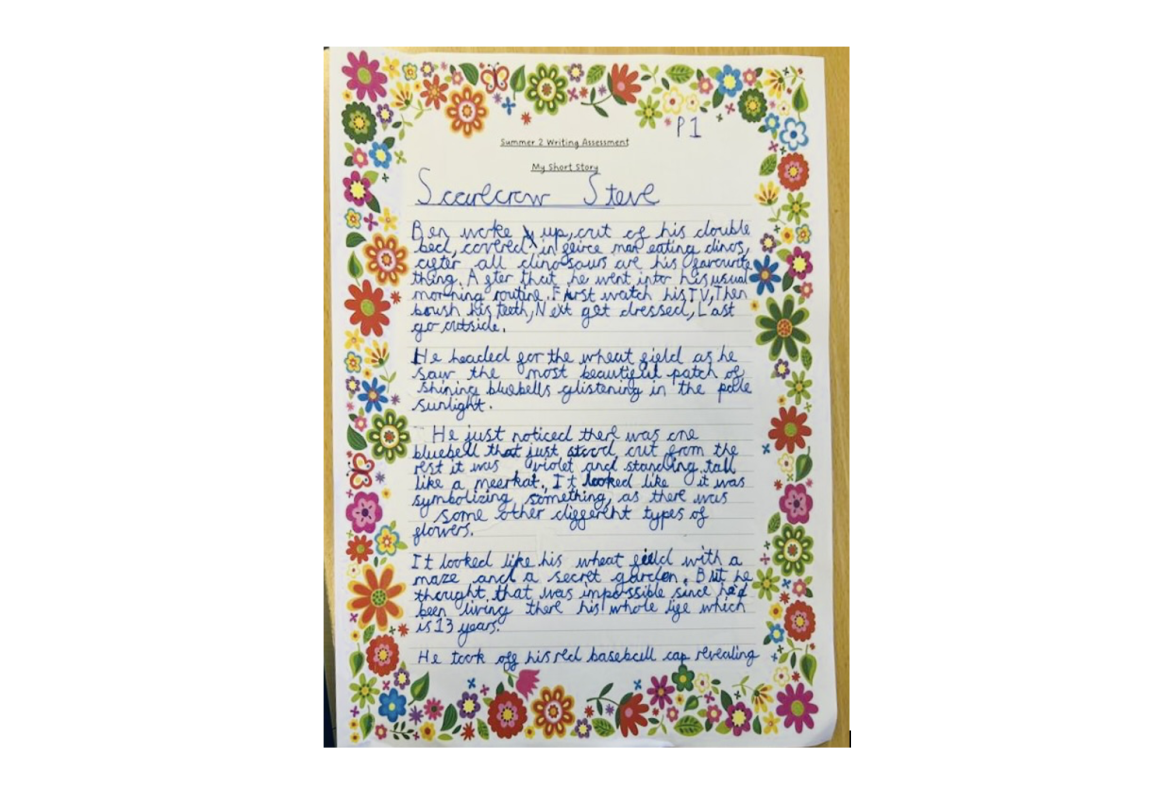 P1
Summer 2 Writing Assessment
My Short Story
Scarecrow Steve
Ben woke up, out of his double
bed, covered in feirce man eating dinos,
after all dinosaurs are his favourite
thing. After that he went into his usual
morning routine. First watch his TV, Then
brush his teeth, Next get dressed, Last
go outside.
He headed for the wheat field as he
saw the most beautiful patch of
shining bluebells glistening in the pale
sunlight.
He just noticed there was one
bluebell that just stood out from the
rest it was violet and standing tall
like a meerkat. It looked like it was
symbolizing something, as there was
some other different types of
flowers.
It looked like his wheat field with a
maze and a secret garden. But he
thought that was impossible since he'd
been living there his whole life which
is 13 years.
He took off his red baseball cap revealing